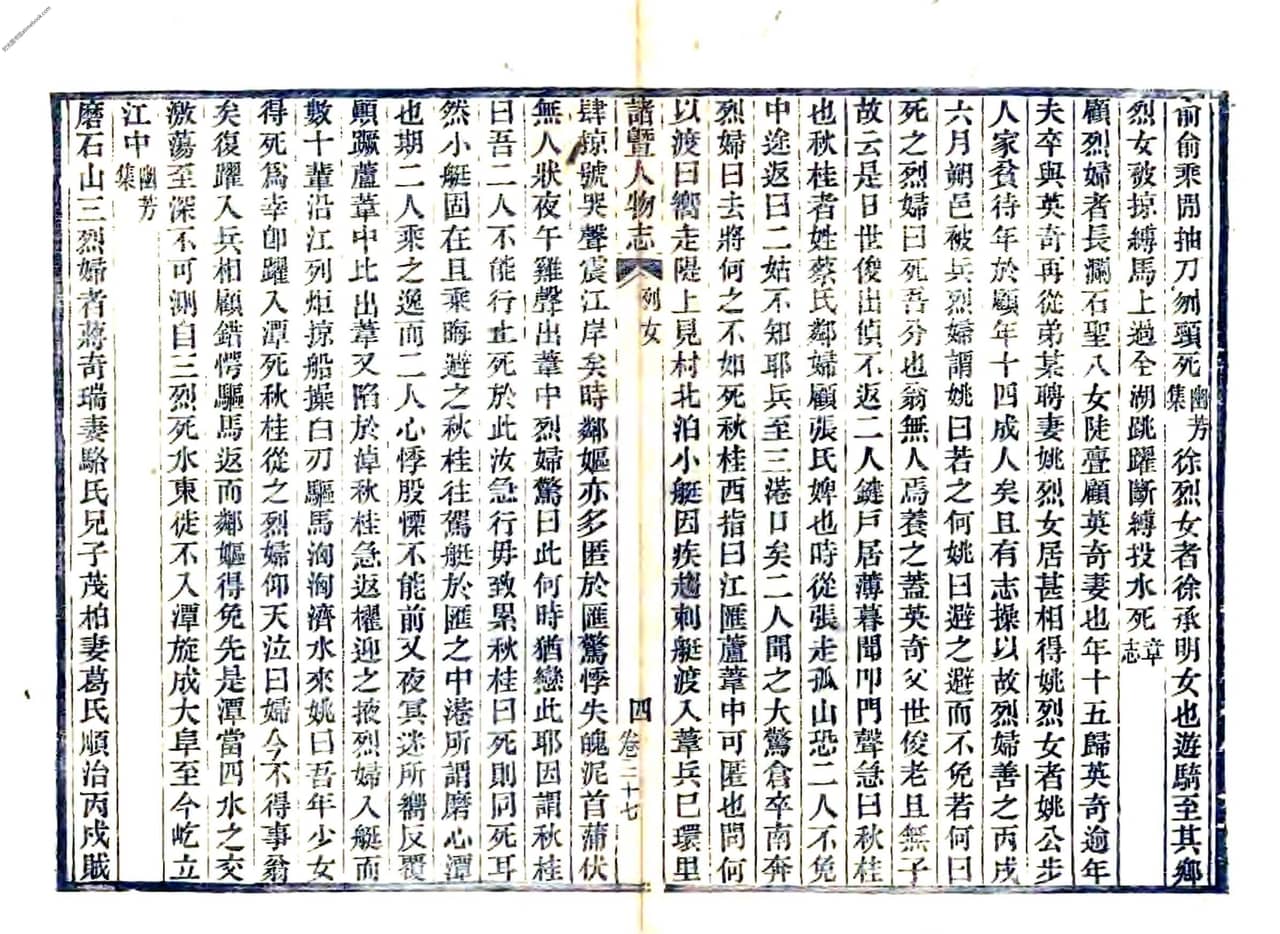 俞俞乘閒抽刀刎頸死幽芳集徐烈女者徐承明女也遊騎至其鄉
烈女被掠縛馬上過全湖跳躍斷縛投水死章志
顧烈婦者長瀾石聖八女陡亹顧英奇妻也年十五歸英奇逾年
夫卒與英奇再從弟某聘妻姚烈女居甚相得姚烈女者姚公步
人家貧待年於顧年十四成人矣且有志操以故烈婦善之丙戌
六月朔邑被兵烈婦謂姚曰若之何姚曰避之避而不免若何曰
死之烈婦曰死吾分也翁無人焉養之蓋英奇父世俊老且無子
故云是日世俊出偵不返二人鍵戸居薄暮聞叩門聲急曰秋桂
也秋桂者姓蔡氏鄰婦顧張氏婢也時從張走孤山恐二人不免
中途返曰二姑不知耶兵至三港口矣二人聞之大驚倉卒南奔
烈婦曰去將何之不如死秋桂西指曰江匯蘆葦中可匿也問何
以渡曰嚮走隄上見村北泊小艇因疾趨刺艇渡入葦兵已環里
諸暨人物志 列女 四 卷二十七
肆掠號哭聲震江岸矣時鄰嫗亦多匿於匯驚悸失魄泥首蒲伏
無人狀夜午雞聲出葦中烈婦驚曰此何時猶戀此耶因謂秋桂
曰吾二人不能行止死於此汝急行毋致累秋桂曰死則同死耳
然小艇固在且乘晦避之秋桂往駕艇於匯之中港所謂磨心潭
也期二人乘之逸而二人心悸股慄不能前又夜冥迷所嚮反覆
顛蹶蘆葦中比出葦又陷於淖秋桂急返櫂迎之掖烈婦入艇而
數十輩沿江列炬掠船操白刃驅馬洶洶濟水來姚曰吾年少女
得死爲幸卽躍入潭死秋桂從之烈婦仰天泣曰婦今不得事翁
矣復躍入兵相顧錯愕驅馬返而鄰嫗得免先是潭當四水之交
激蕩至深不可測自三烈死水東徙不入潭旋成大阜至今屹立
江中幽芳集
磨石山三烈婦者蔣奇瑞妻駱氏兄子茂柏妻葛氏順治丙戌賊